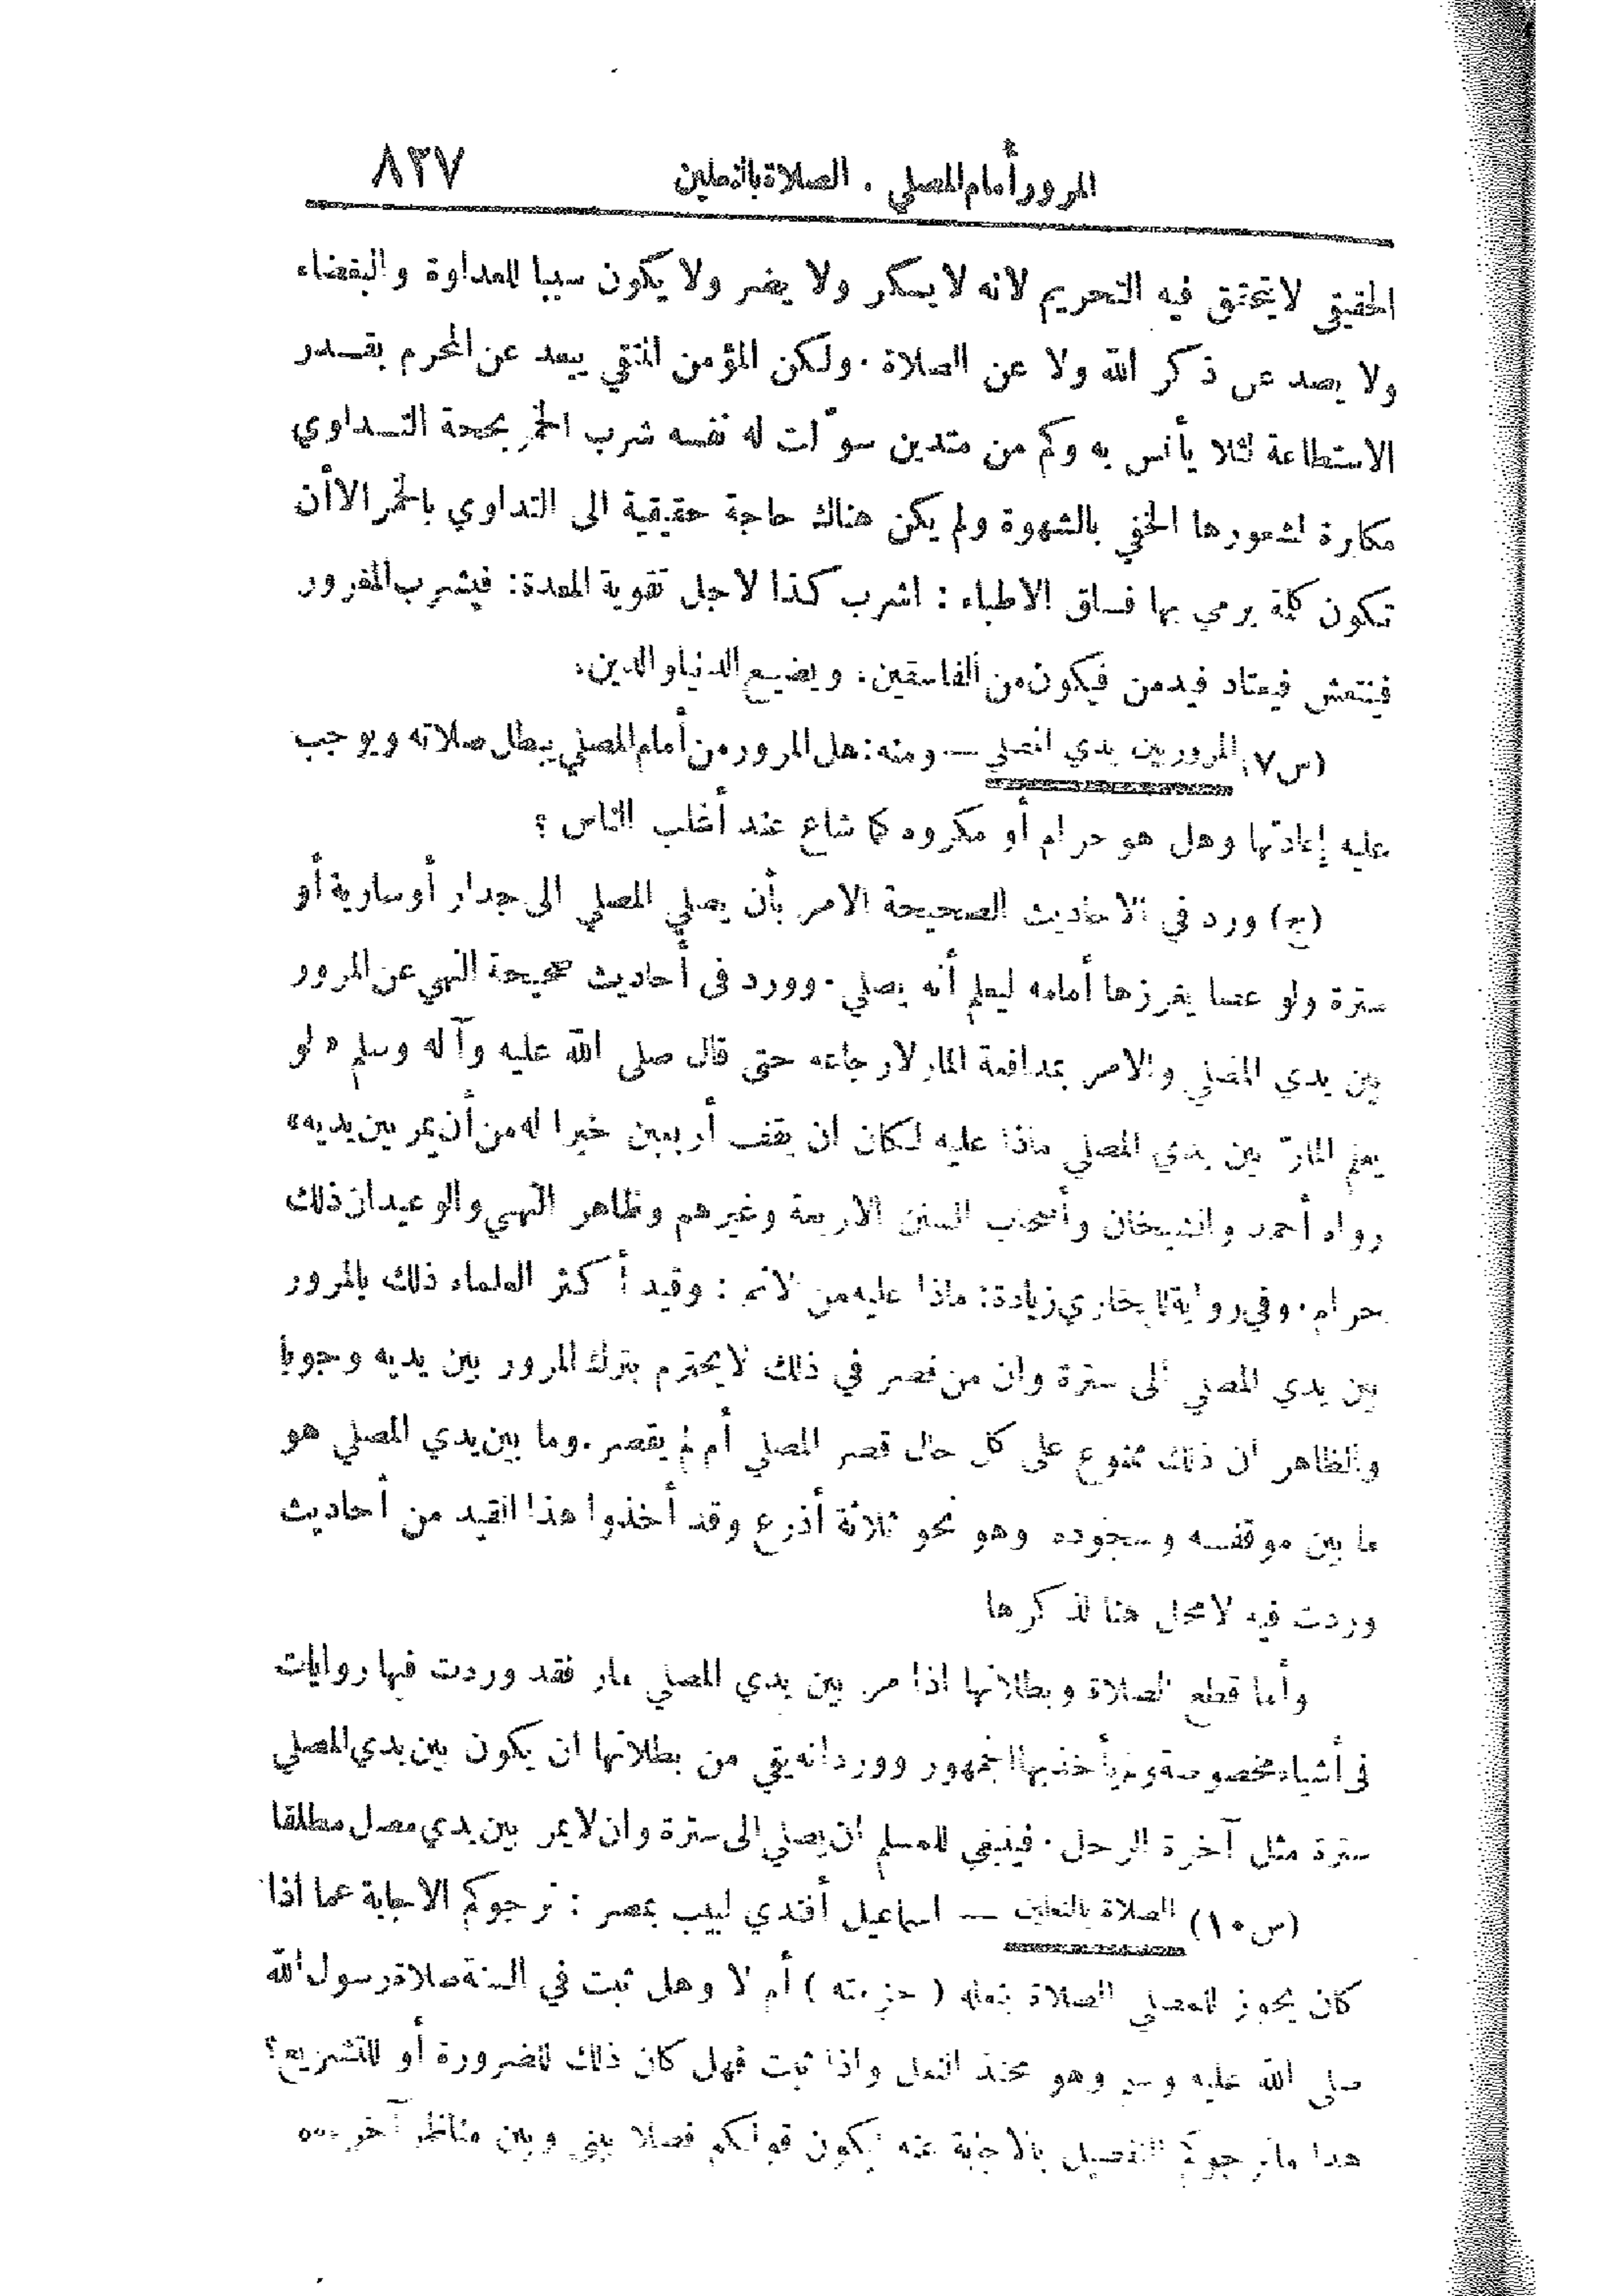 المرور أمام المصلي . الصلاة بالنعلين ٨٣٧
الحقيقي لا يتحقق فيه التحريم لانه لا يسكر ولا يضر ولا يكون سببا للعداوة والبغضاء
ولا يصد عن ذكر الله ولا عن الصلاة . ولكن المؤمن المتقي يبعد عن المحرم بقدر
الاستطاعة لئلا يأنس به وكم من متدين سوّلت له نفسه شرب الخمر بحجة التداوي
مكارة لشعورها الخفي بالشهوة ولم يكن هناك حاجة حقيقية الى التداوي بالخمر الا أن
تكون كلمة يرمي بها فساق الاطباء : اشرب كذا لاجل تقوية المعدة : فيشرب المغرور
فينتعش فيعتاد فيدمن فيكون من الفاسقين . ويضيع الدنيا والدين .
(س٧) المرور بين يدي المصلي — ومنه : هل المرور من أمام المصلي يبطل صلاته ويوجب
عليه إعادتها وهل هو حرام أو مكروه كما شاع عند أغلب الناس ؟
(ج) ورد في الاحاديث الصحيحة الامر بأن يصلي المصلي الى جدار أو سارية أو
سترة ولو عصا يغرزها أمامه ليعلم أنه يصلي . وورد في أحاديث صحيحة النهي عن المرور
بين يدي المصلي والامر بمدافعة المار لارجاعه حتى قال صلى الله عليه وآله وسلم « لو
يعلم المارّ بين يدي المصلي ماذا عليه لكان ان يقف أربعين خيرا له من أن يمر بين يديه »
رواه أحمد والشيخان وأصحاب السنن الاربعة وغيرهم وظاهر النهي والوعيد ان ذلك
حرام . وفي رواية للبخاري زيادة : ماذا عليه من الاثم : وقيد أكثر العلماء ذلك بالمرور
بين يدي المصلي الى سترة وان من قصر في ذلك لا يحترم بترك المرور بين يديه وجوبا
والظاهر ان ذلك ممنوع على كل حال قصر المصلي أم لم يقصر . وما بين يدي المصلي هو
ما بين موقفه وسجوده وهو نحو ثلاثة أذرع وقد أخذوا هذا القيد من أحاديث
وردت فيه لا محل هنا لذكرها
وأما قطع الصلاة وبطلانها اذا مر بين يدي المصلي مار فقد وردت فيها روايات
في أشياء مخصوصة ولم يأخذ بها الجمهور وورد انه يقي من بطلانها ان يكون بين يدي المصلي
سترة مثل آخرة الرحل . فينبغي للمسلم ان يصلي الى سترة وان لا يمر بين يدي مصل مطلقا
(س١٠) الصلاة بالنعلين — اسماعيل أفندي لبيب بمصر : نرجوكم الاجابة عما اذا
كان يجوز للمصلي الصلاة بنعله ( جزمته ) أم لا وهل ثبت في السنة صلاة رسول الله
صلى الله عليه وسلم وهو متخذ النعل واذا ثبت فهل كان ذلك للضرورة أو للتشريع ؟
هذا ما نرجوكم التفضل بالاجابة عنه ليكون قولكم فصلا بيني وبين مناظر آخر